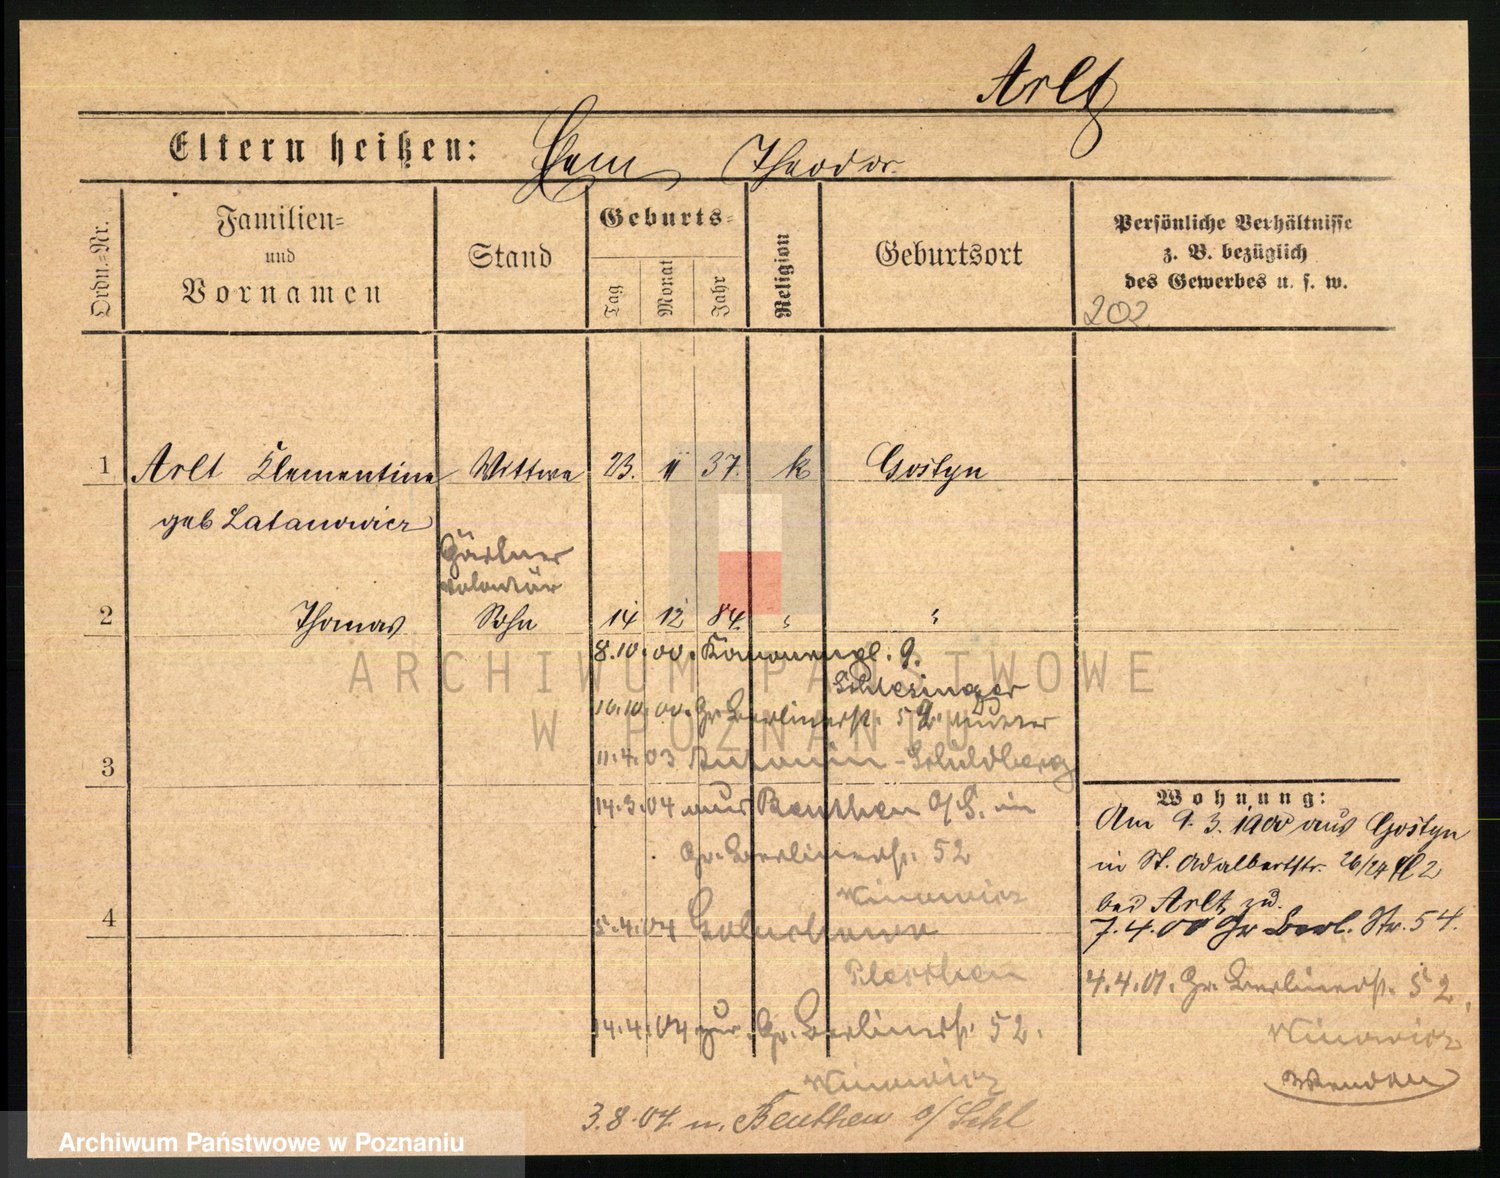 Arlt
Eltern heißen: Theodor.
Ordn.=Nr.
Familien=
und
Vornamen
Stand
Geburts=
Tag
Monat
Jahr
Religion
Geburtsort
Persönliche Verhältnisse
z. B. bezüglich
des Gewerbes u. s. w.
202
1 Arlt Klementine Wittwe 23. 11 37. k Gostyn
geb Latanowicz
Gärtner
volontär
2 Thomas Sohn 14 12 84. " "
8.10.00. Kanonenpl. 9.
Schlesinger
10.10.00. Gr. Berlinerstr. 52. Mutter
3 11.4.03 - Schildberg
14.3.04 aus Beuthen O/S. in
Gr. Berlinerstr. 52
4 5.4.04
Pleschen
14.4.04 zur. Gr. Berlinerstr. 52.
3.8.04. n. Beuthen o/Schl
Wohnung:
Am 9.3.1900 aus Gostyn
in St. Adalbertstr. 26/27 2
bei Arlt, zu.
7.4.00 Gr Berl. Str. 54.
4.4.01. Gr. Berlinerstr. 52.
ARCHIWUM PAŃSTWOWE
W POZNANIU
Archiwum Państwowe w Poznaniu